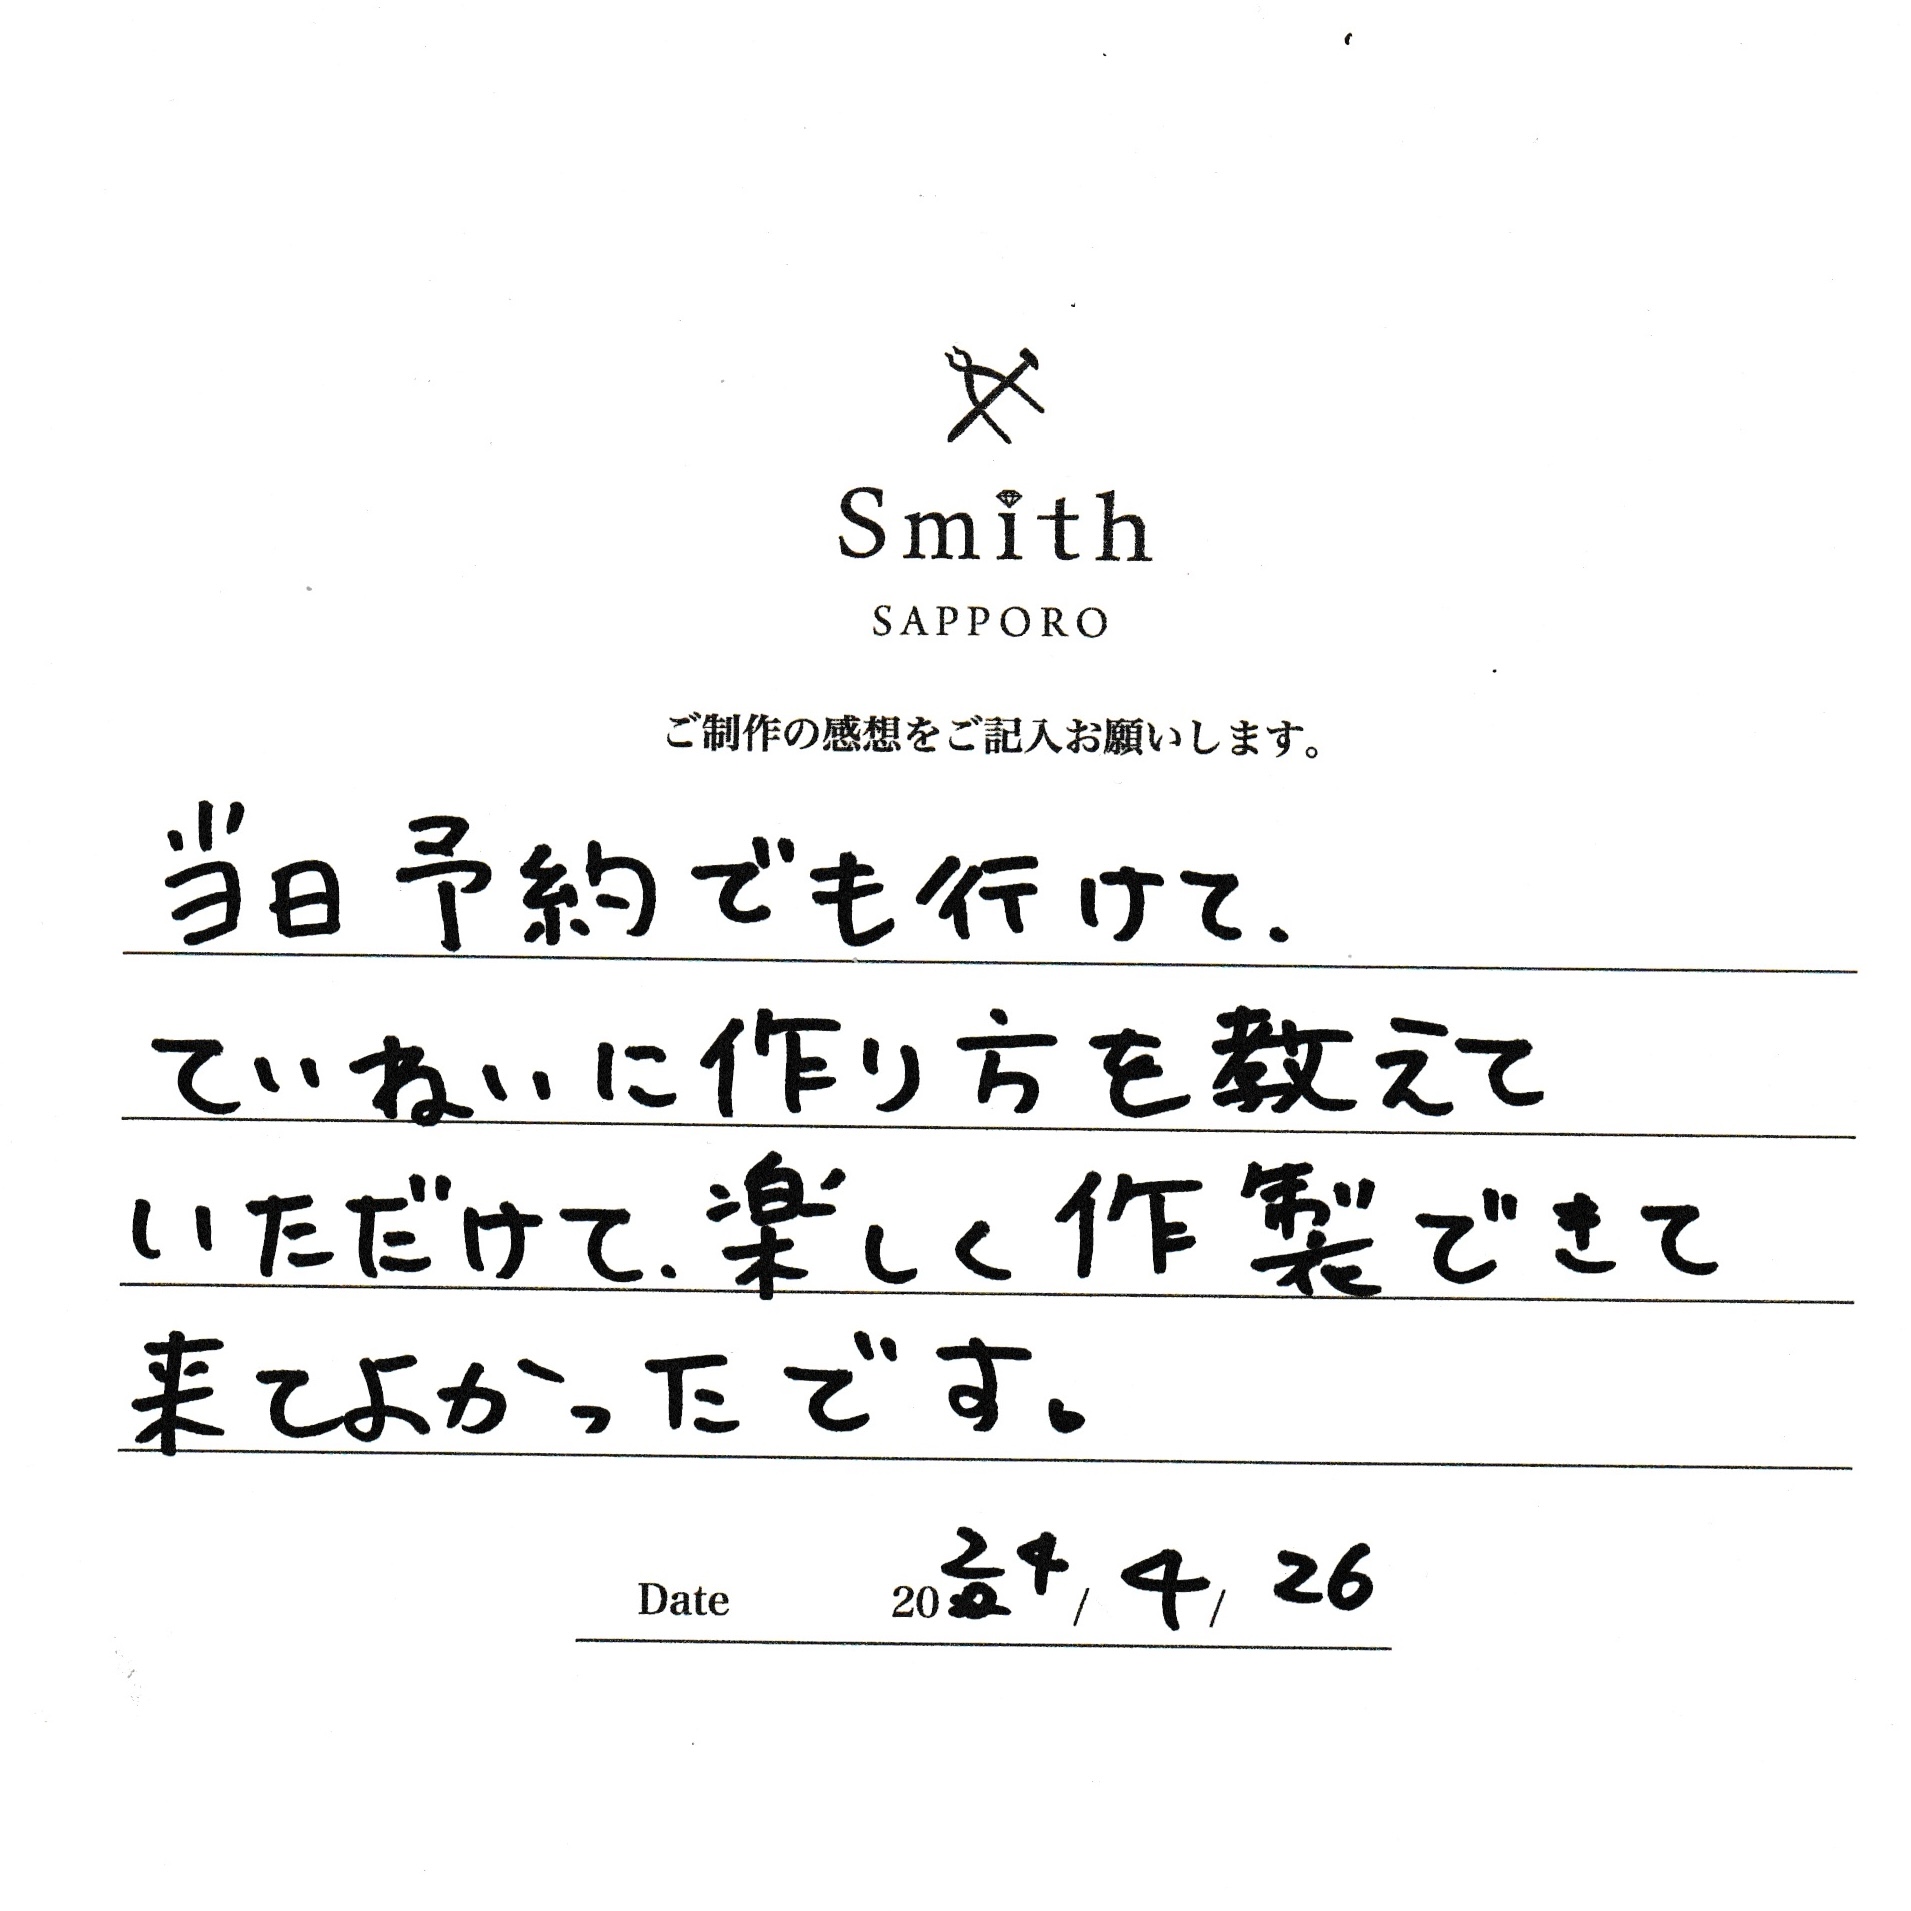 Smith
SAPPORO
ご制作の感想をご記入お願いします。
当日予約でも行けて、
ていねいに作り方を教えて
いただけて、楽しく作製できて
来てよかったです。
Date 2024/4/26